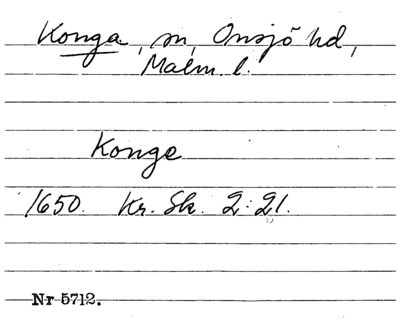 Konga, sn, Onsjö hd,
Malm. l.
Konge
1650. Kr. Sk. 2:21.
Nr 5712.